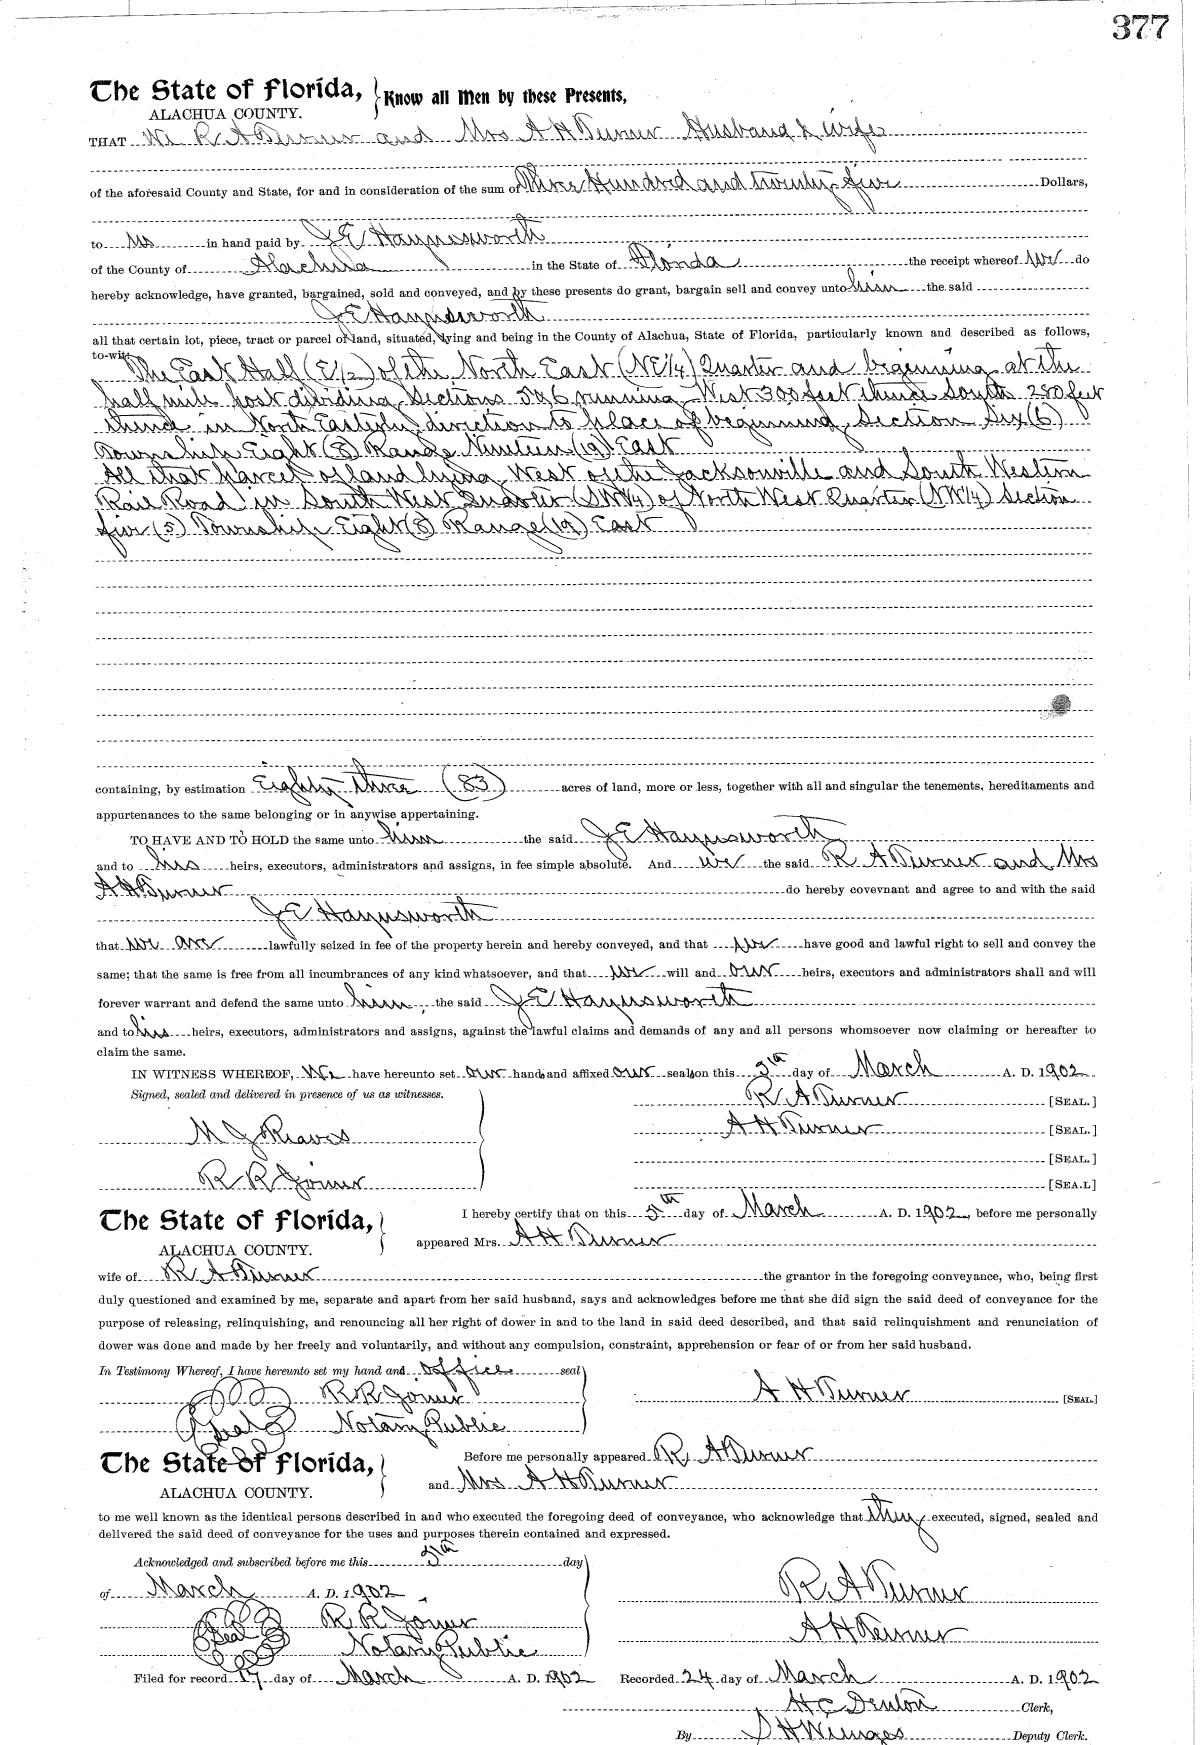 377
The State of Florida, Know all Men by these Presents,
ALACHUA COUNTY.
THAT We R A Turner and Mrs A H Turner Husband & wife
of the aforesaid County and State, for and in consideration of the sum of Three Hundred and twenty-five Dollars,
to us in hand paid by J E Haynesworth
of the County of Alachua in the State of Florida the receipt whereof we do
hereby acknowledge, have granted, bargained, sold and conveyed, and by these presents do grant, bargain sell and convey unto him the said
J E Haynesworth
all that certain lot, piece, tract or parcel of land, situated, lying and being in the County of Alachua, State of Florida, particularly known and described as follows,
to-wit:
The East Half (E1/2) of the North East (NE1/4) Quarter and beginning at the
half mile post dividing Sections 5 & 6 running West 300 feet thence South 280 feet
thence in North Easterly direction to place of beginning, Section Six (6)
Township Eight (8) Range Nineteen (19) East
All that parcel of land lying West of the Jacksonville and South Western
Rail Road in South West Quarter (SW1/4) of North West Quarter (NW1/4) Section
five (5) Township Eight (8) Range (19) East
containing, by estimation Eighty three (83) acres of land, more or less, together with all and singular the tenements, hereditaments and
appurtenances to the same belonging or in anywise appertaining.
TO HAVE AND TO HOLD the same unto him the said J E Haynesworth
and to his heirs, executors, administrators and assigns, in fee simple absolute. And we the said R A Turner and Mrs
A H Turner do hereby covevnant and agree to and with the said
J E Haynesworth
that we are lawfully seized in fee of the property herein and hereby conveyed, and that we have good and lawful right to sell and convey the
same; that the same is free from all incumbrances of any kind whatsoever, and that we will and our heirs, executors and administrators shall and will
forever warrant and defend the same unto him, the said J E Haynesworth
and to his heirs, executors, administrators and assigns, against the lawful claims and demands of any and all persons whomsoever now claiming or hereafter to
claim the same.
IN WITNESS WHEREOF, We have hereunto set our hands and affixed our seals on this 5th day of March A. D. 1902
Signed, sealed and delivered in presence of us as witnesses. R A Turner [SEAL.]
M J Reaves A H Turner [SEAL.]
[SEAL.]
R R Joiner [SEA.L]
The State of Florida, I hereby certify that on this 5th day of March A. D. 1902, before me personally
ALACHUA COUNTY. appeared Mrs. A H Turner
wife of R A Turner the grantor in the foregoing conveyance, who, being first
duly questioned and examined by me, separate and apart from her said husband, says and acknowledges before me that she did sign the said deed of conveyance for the
purpose of releasing, relinquishing, and renouncing all her right of dower in and to the land in said deed described, and that said relinquishment and renunciation of
dower was done and made by her freely and voluntarily, and without any compulsion, constraint, apprehension or fear of or from her said husband.
In Testimony Whereof, I have hereunto set my hand and office seal
R R Joiner A H Turner [SEAL.]
Seal Notary Public
The State of Florida, Before me personally appeared R A Turner
ALACHUA COUNTY. and Mrs A H Turner
to me well known as the identical persons described in and who executed the foregoing deed of conveyance, who acknowledge that they executed, signed, sealed and
delivered the said deed of conveyance for the uses and purposes therein contained and expressed.
Acknowledged and subscribed before me this 5th day
of March A. D. 1902 R A Turner
Seal R R Joiner A H Turner
Notary Public
Filed for record 17 day of March A. D. 1902 Recorded 24 day of March A. D. 1902
H C Denton Clerk,
By S H Wienges Deputy Clerk.